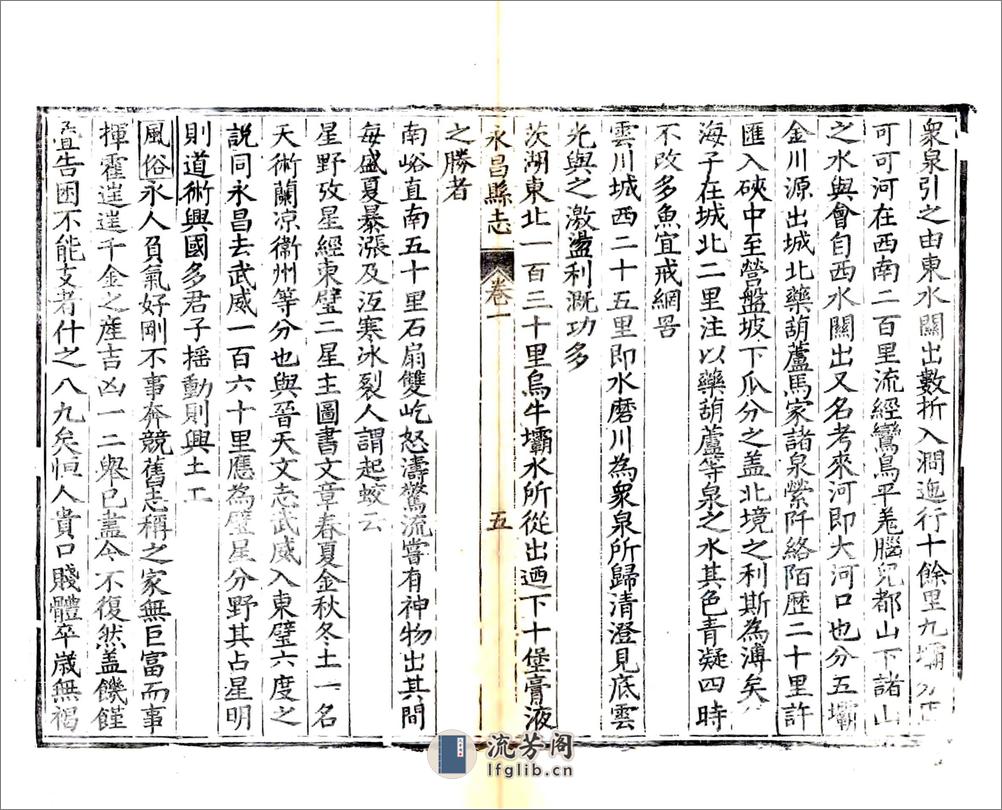 衆泉引之由東水關出數折入澗迤行十餘里九壩
可可河在西南二百里流經鸞鳥平羗腦兒都山下諸山
之水與會自西水關出又名考來河即大河口也分五壩
金川源出城北藥葫蘆馬家諸泉縈阡絡陌歷二十里許
匯入硤中至營盤坡下瓜分之盖北境之利斯為溥矣
海子在城北二里注以藥葫蘆等泉之水其色青凝四時
不改多魚宜戒網罟
雲川城西二十五里即水磨川為衆泉所歸清澄見底雲
光與之激盪利溉功多
茨湖東北一百三十里烏牛壩水所從出迺下十堡膏液
永昌縣志 卷一 五
之勝者
南峪直南五十里石扇雙屹怒濤驚流嘗有神物出其間
每盛夏暴漲及沍寒冰裂人謂起蛟云
星野攷星經東璧二星主圖書文章春夏金秋冬土一名
天術蘭凉衞州等分也與晉天文志武威入東璧六度之
說同永昌去武威一百六十里應為璧星分野其占星明
則道術興國多君子揺動則興土工
風俗永人負氣好剛不事奔競舊志稱之家無巨富而事
揮霍逹逹千金之産吉凶一二舉已盖今不復然盖饑饉
荐告困不能支者什之八九矣恒人貴口賤體卒歲無褐
流芳阁
lfglib.cn